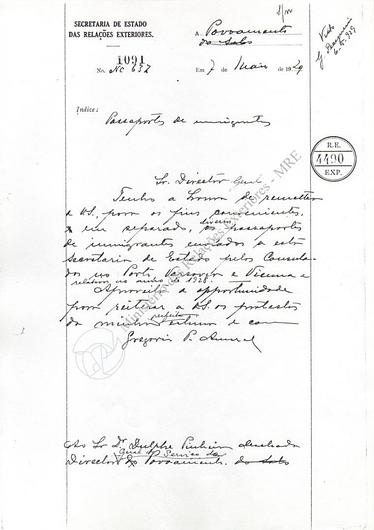 SECRETARIA DE ESTADO
DAS RELAÇÕES EXTERIORES.
A Povoamento
do Solo
1091
No. NC 652
Em 7 de Maio de 1929
Visto
Indice:
Passaportes de immigrantes
R.E.
4490
EXP.
Sr. Director Geral
Tenho a honra de remetter
a V.S. para os fins convenientes,
e em separado, os diversos passaportes
de immigrantes enviados a esta
Secretaria de Estado pelos Consula-
dos no Porto, Varsovia e Vienna e
relativos ao anno de 1928.
Aproveito a opportunidade
para reiterar a V.S. os protestos
da minha perfeita estima e
Gregorio P.
Ministério das Relações Exteriores - MRE
Ao Sr. Dr. Dulphe Pinheiro Machado
Director Geral do Serviço de Povoamento do Solo